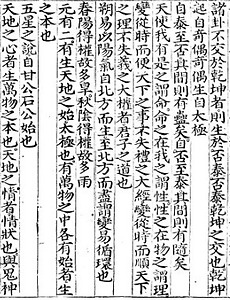 諸卦不交於乾坤者則生於否泰否泰乾坤之交也乾坤
起自奇偶奇偶生自太極
自泰至否其間則有蠱矣自否至泰其間則有隨矣
天使我有是之謂命命之在我之謂性性之在物之謂理
變從時而便天下之事不失禮之大經變從時而順天下
之理不失義之大權者君子之道也
朔易以陽氣自北方而生至北方而盡謂變易循環也
春陽得權故多旱秋陰得權故多雨
元有二有生天地之始太極也有萬物之中各有始者生
之本也
五星之說自甘公石公始也
天地之心者生萬物之本也天地之情者情狀也與鬼神